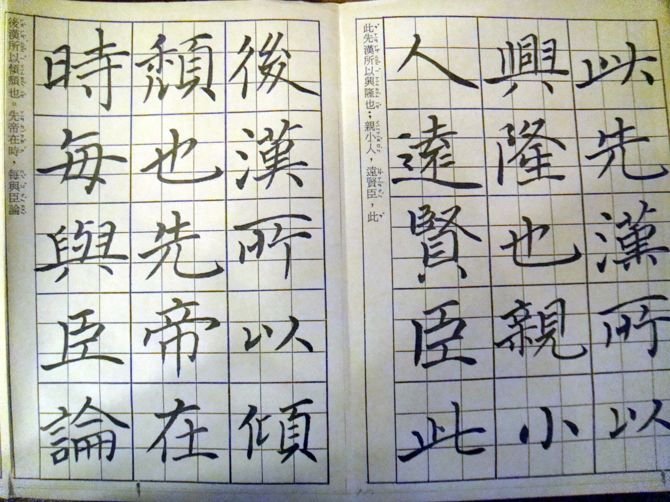 此先漢所以
興隆也親小
人遠賢臣此
此先漢所以興隆也；親小人，遠賢臣，此
後漢所以傾
頹也先帝在
時每與臣論
後漢所以傾頹也。先帝在時，每與臣論